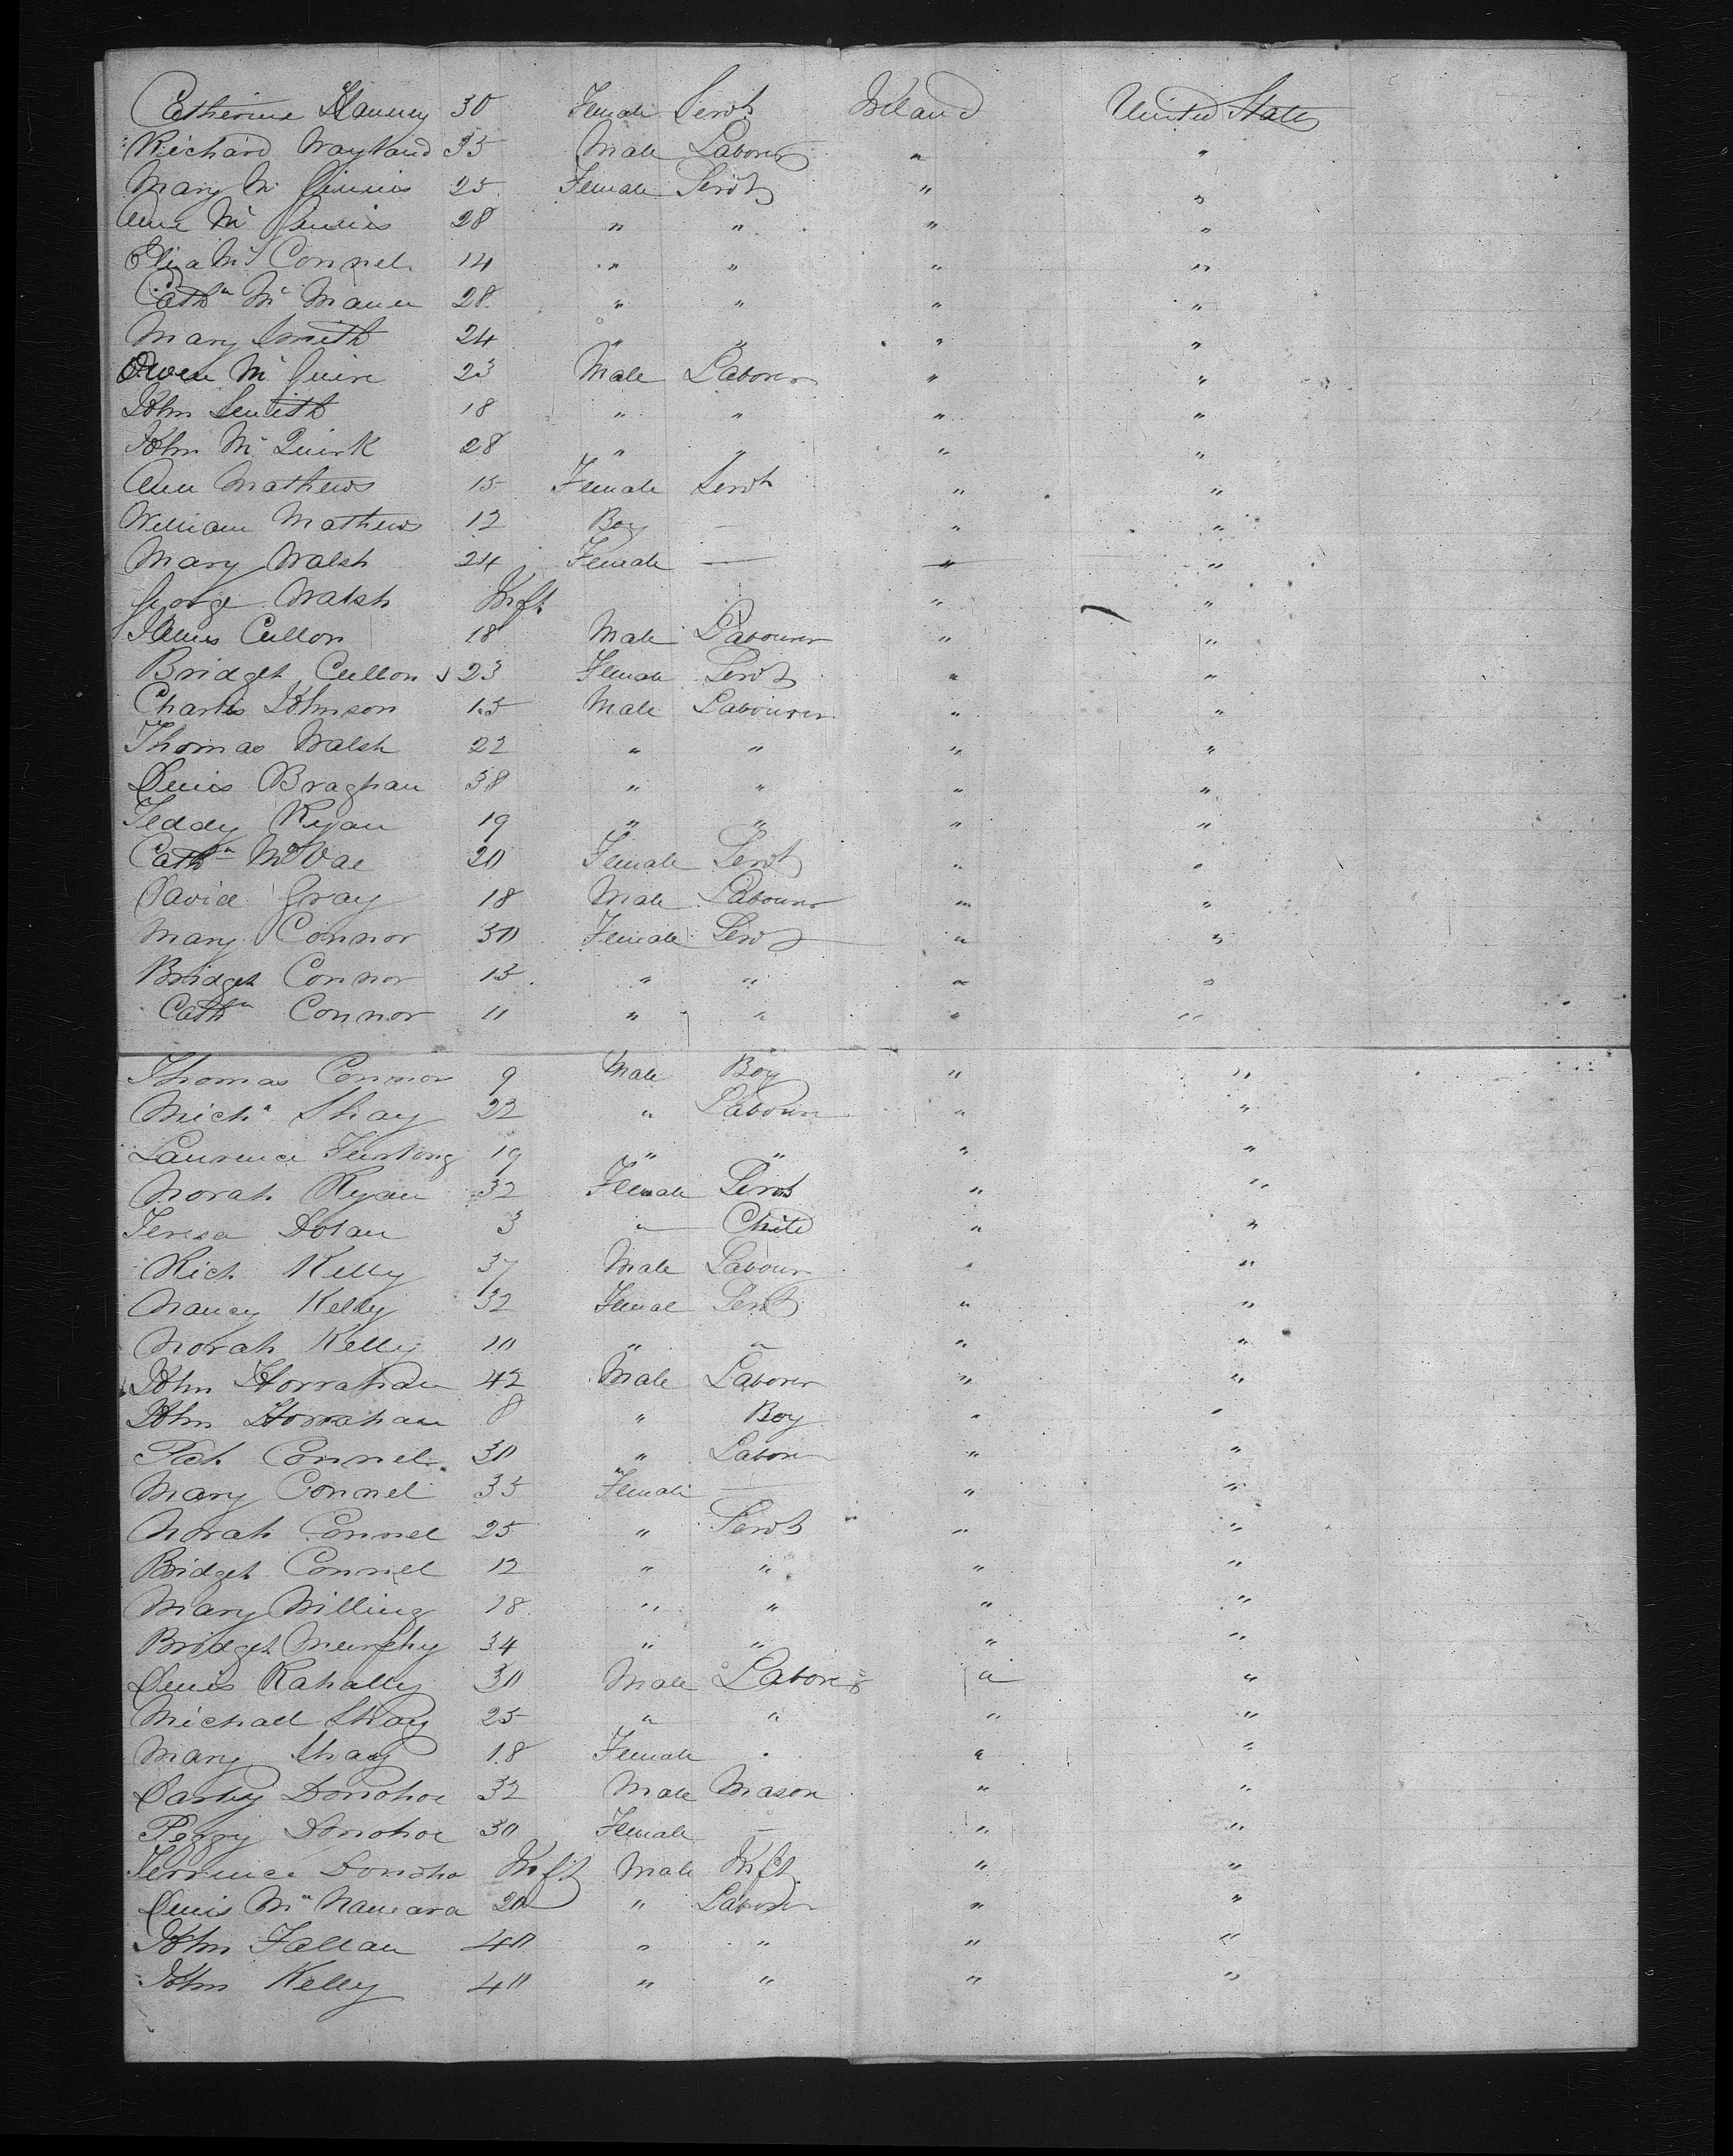 Catherine 30 Female Servt Ireland United States
Richard Wayland 35 Male Laborer " "
Mary Mc Ginnis 25 Female Servt " "
Ann Mc Ginnis 28 " " " "
Eliza Mc Connel 14 " " " "
Cathn Mc Manu 28 " " " "
Mary Smith 24 " " " "
Owen Mc Guire 23 Male Laborer " "
John Smith 18 " " " "
John Mc Quirk 28 " " " "
Ann Mathews 15 Female Servt " "
William Mathews 12 Boy — " "
Mary Walsh 24 Female — " "
George Walsh Inft " "
James Cullon 18 Male Labourer " "
Bridget Cullon 23 Female Servt " "
Charles Johnson 15 Male Labourer " "
Thomas Walsh 22 " " " "
Denis Braghan 38 " " " "
Teddy Ryan 19 " " " "
Cathn McVae 20 Female Servt " "
David Gray 18 Male Labourer " "
Mary Connor 30 Female Servt " "
Bridget Connor 13 " " " "
Cathn Connor 11 " " " "
Thomas Connor 9 Male Boy " "
Michl Shay 22 " Labourer " "
Laurence Furlong 19 " " " "
Norah Ryan 32 Female Servt " "
Teresa Dolan 3 " Child " "
Rich Kelly 37 Male Labour " "
Nancy Kelly 32 Femal Servt " "
Norah Kelly 10 " " " "
John Horrahan 42 Male Laborer " "
John Horrahan 8 " Boy " "
Pat Connel 30 " Laborer " "
Mary Connel 35 Female — " "
Norah Connel 25 " Servt " "
Bridget Connel 12 " " " "
Mary Milling 18 " " " "
Bridget Murphy 34 " " " "
Denis Rahally 30 Male Laborer " "
Michael Shay 25 " " " "
Mary Shay 18 Female " " "
Darby Donohoe 32 Male Mason " "
Peggy Donohoe 30 Female — " "
Terrence Donoho Inft Male Inft " "
Denis Mc Namara 20 " Laborer " "
John Fallan 40 " " " "
John Kelly 40 " " " "